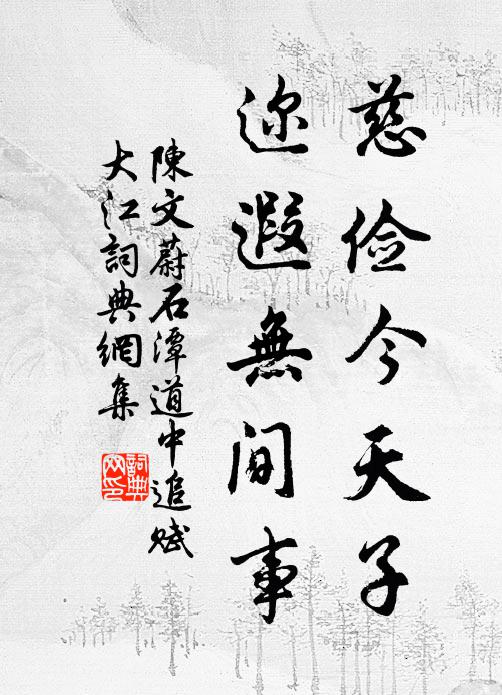 慈俭今天子
迩遐無间事
陳文蔚石潭道中追赋
大江詞典網集
詞典
网印